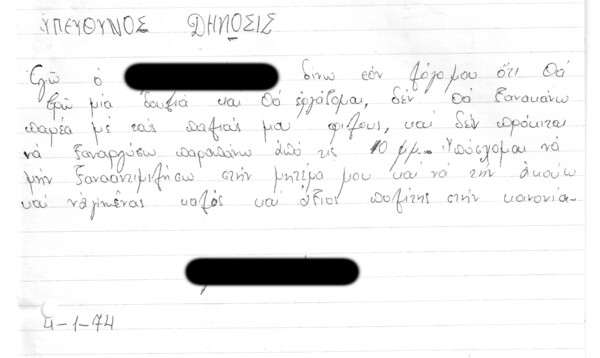 ΥΠΕΥΘΥΝΟΣ ΔΗΛΟΣΙΣ
Ἐγὼ ὁ δίνω τὸν λόγο μου ὅτι θὰ
βρῶ μία δουλιά και θά ἐργάζομαι, δὲν θὰ ξανακάνω
παρέα μὲ τοὺς παλιούς μου φίλους, και δὲν πρόκιται
νὰ ξαναργήσω παραπάνω ἀπό τὶς 10 μ.μ. Ὑπόσχομαι νὰ
μὴν ξανααντιμιλήσω στὴν μητέρα μου και νὰ τὴν ἀκούω
και νὰ γίνω ἕνας καλὸς και ἄξιος πολίτης στὴν κοινονία.
4-1-74